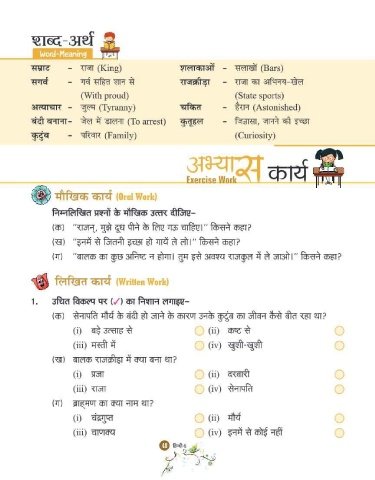 शब्द-अर्थ
Word-Meaning
सम्राट - राजा (King)
सगर्व - गर्व सहित ज्ञान से
(With proud)
अत्याचार - जुल्म (Tyranny)
बंदी बनाना - जेल में डालना (To arrest)
कुटुंब - परिवार (Family)
शलाकाओं - सलाखों (Bars)
राजक्रीड़ा - राजा का अभिनय-खेल
(State sports)
चकित - हैरान (Astonished)
कुतूहल - जिज्ञासा, जानने की इच्छा
(Curiosity)
अभ्यास कार्य
Exercise Work
मौखिक कार्य (Oral Work)
निम्नलिखित प्रश्नों के मौखिक उत्तर दीजिए-
(क) "राजन्, मुझे दूध पीने के लिए गऊ चाहिए।" किसने कहा?
(ख) "इनमें से जितनी इच्छा हो गायें ले लो।" किसने कहा?
(ग) "बालक का कुछ अनिष्ट न होगा। तुम इसे अवश्य राजकुल में ले जाओ।" किसने कहा?
लिखित कार्य (Written Work)
1. उचित विकल्प पर (✓) का निशान लगाइए-
(क) सेनापति मौर्य के बंदी हो जाने के कारण उनके कुटुंब का जीवन कैसे बीत रहा था?
(i) बड़े उत्साह से (ii) कष्ट से
(iii) मस्ती में (iv) खुशी-खुशी
(ख) बालक राजक्रीड़ा में क्या बना था?
(i) प्रजा (ii) दरबारी
(iii) राजा (iv) सेनापति
(ग) ब्राह्मण का क्या नाम था?
(i) चंद्रगुप्त (ii) मौर्य
(iii) चाणक्य (iv) इनमें से कोई नहीं
हिन्दी-6